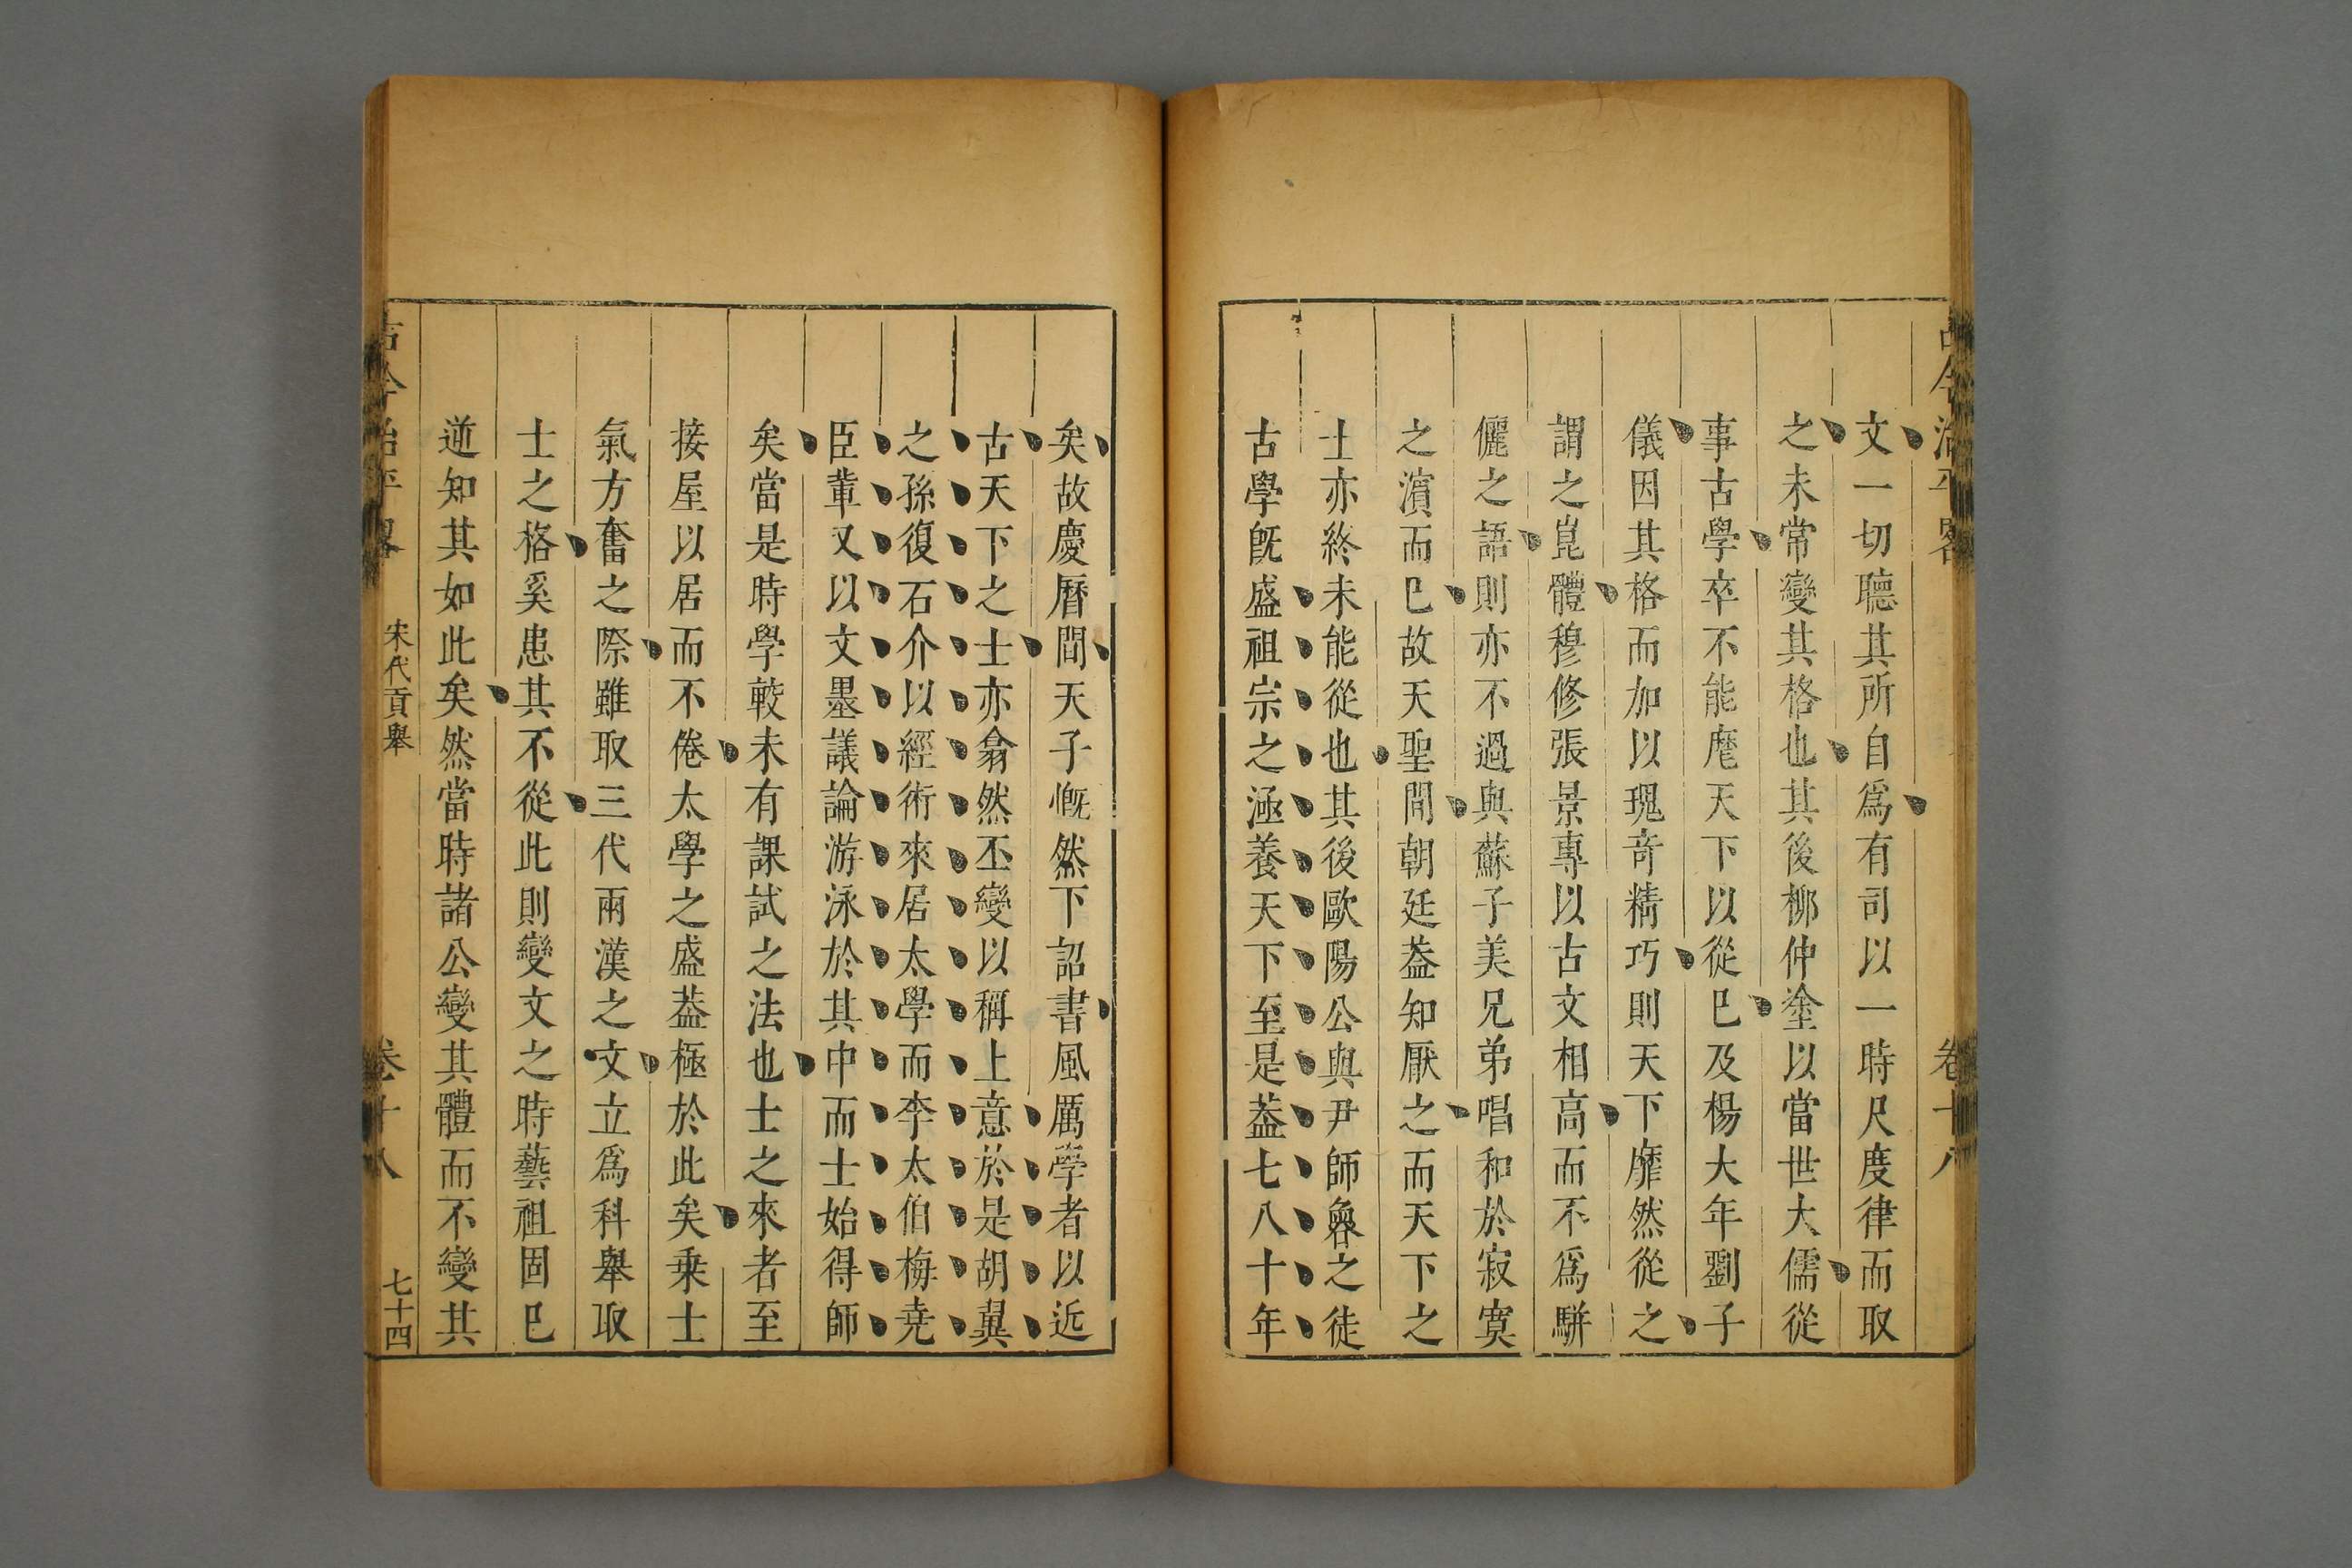 古今治平畧　卷十八
文一切聽其所自爲有司以一時尺度律而取
之未常變其格也其後柳仲塗以當世大儒從
事古學卒不能麾天下以從已及楊大年劉子
儀因其格而加以瑰奇精巧則天下靡然從之
謂之崑體穆修張景專以古文相高而不爲駢
儷之語則亦不過與蘇子美兄弟唱和於寂寞
之濵而已故天聖間朝廷葢知厭之而天下之
士亦終未能從也其後歐陽公與尹師魯之徒
古學旣盛祖宗之涵養天下至是葢七八十年
矣故慶曆間天子慨然下詔書風厲學者以近
古天下之士亦翕然丕變以稱上意於是胡翼
之孫復石介以經術來居太學而李太伯梅堯
臣軰又以文墨議論游泳於其中而士始得師
矣當是時學較未有課試之法也士之來者至
接屋以居而不倦太學之盛葢極於此矣乗士
氣方奮之際雖取三代兩漢之文立爲科舉取
士之格奚患其不從此則變文之時藝祖固已
逆知其如此矣然當時諸公變其體而不變其
古今治平畧　宋代貢舉　卷十八　七十四